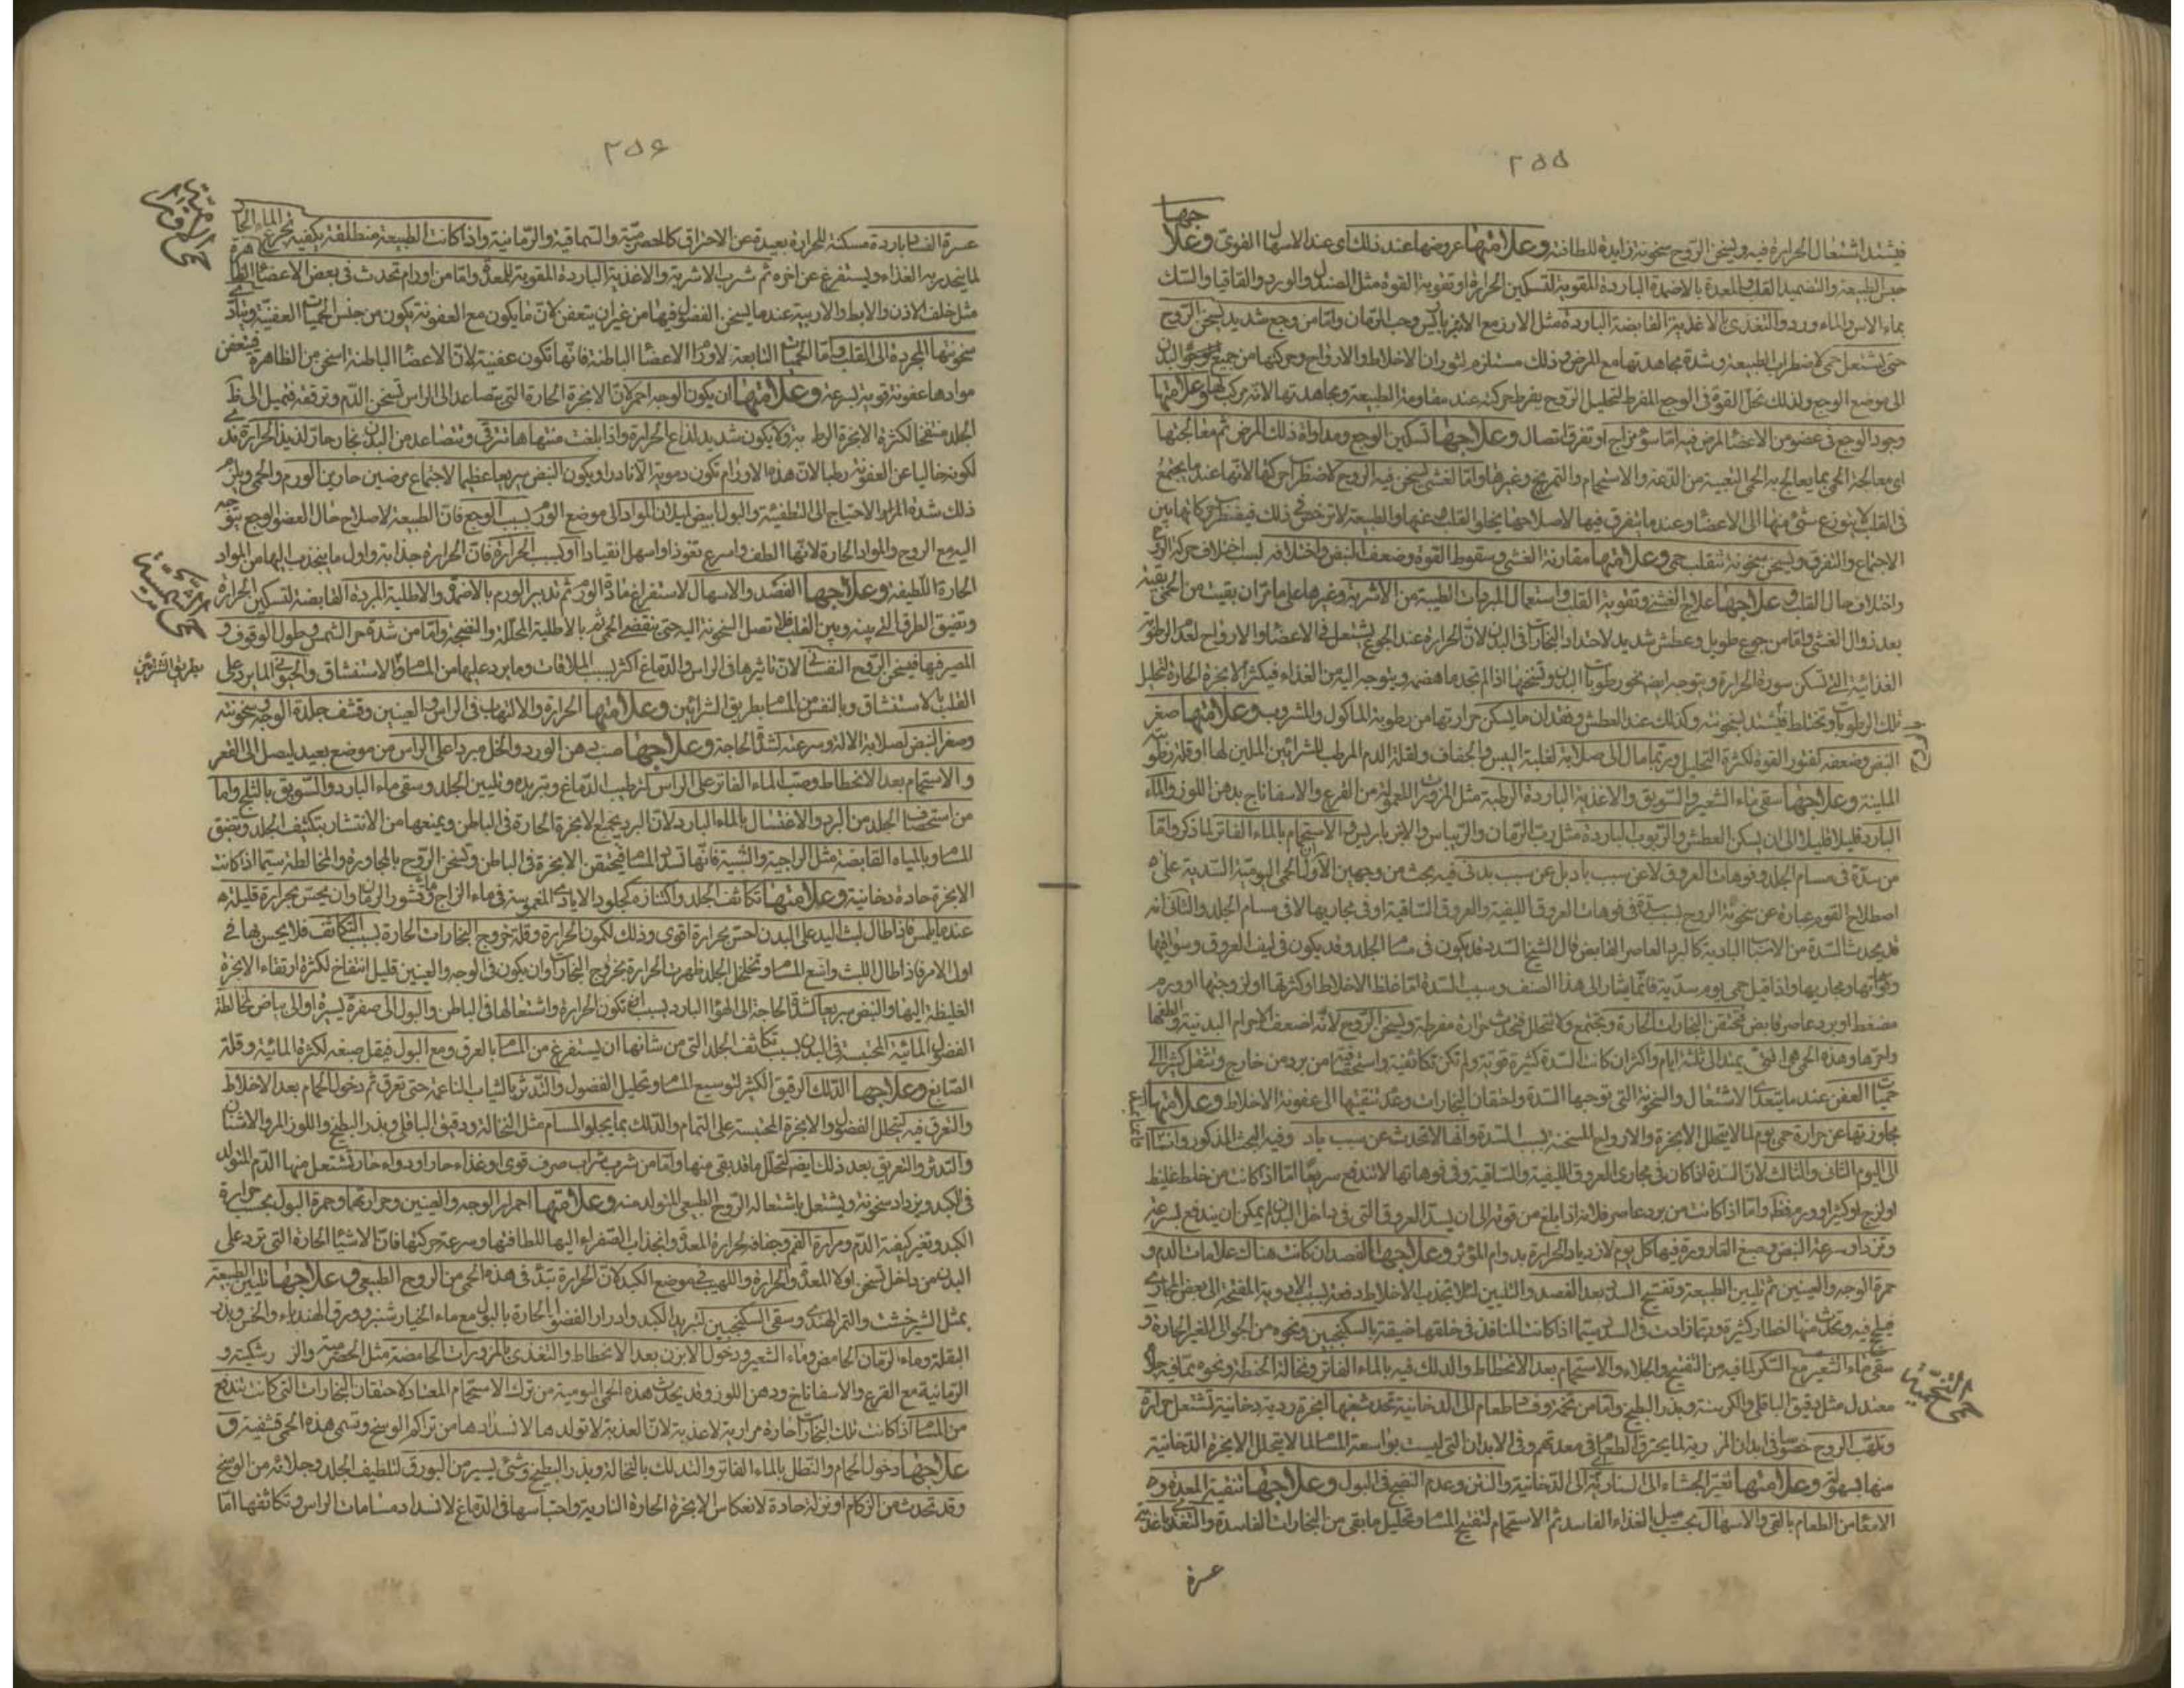 ٢٥٥
فيشتد اشتعال الحرارة فيه ويسخن الروح سخونة زايدة للطافته وعلامتها عروضها عند ذلك اى عند الاسهال القوى وعلاجها
حبس الطبيعة والتضميد القلب والمعدة بالاضمدة الباردة المقوية لتسكين الحرارة وتقوية القوة مثل الصندل والورد والقاقيا والسك
بماء الاس والماء ورد والتغذى بالاغذية القابضة الباردة مثل الارز مع الانبرباريس وحب الرمان واما من وجع شديد يسخن الروح
حتى يشتعل حمى لاضطراب الطبيعة وشدة مجاهدتها مع المرض وذلك مستلزم لثوران الاخلاط والارواح وحركتها من جميع البدن
الى موضع الوجع ولذلك تحل القوة فى الوجع المفرط لتحليل الروح بفرط حركته عند مقاومة الطبيعة ومجاهدتها وعلامتها
وجود الوجع فى عضو من الاعضاء لمرض فيه اما سوء مزاج او تفرق اتصال وعلاجها تسكين الوجع ومداواة ذلك المرض ثم معالجتها
اى معالجة الحمى بما يعالج به الحمى التعبية من الدعة والاستحمام والتمريخ وغيرها واما لغشى يسخن فيه الروح لاضطراب حركتها لانها عند ما يجتمع
فى القلب لا يتوزع شئ منها الى الاعضاء وعند ما يتفرق فيها لاصلاحها يخلو القلب عنها والطبيعة لا ترخص فى ذلك فيضطرب حركاتها بين
الاجتماع والتفرق ويسخن سخونة تنقلب حمى وعلامتها مقارنة الغشى وسقوط القوة وضعف النبض واختلافه بسبب اختلاف حركة الروح
واختلاف حال القلب وعلاجها علاج الغشى وتقوية القلب واستعمال المبردات الطيبة من الاشربة وغيرها على ما مر ان بقيت من الحمى بقية
بعد زوال الغشى واما من جوع طويل وعطش شديد لاحتداد البخارات فى البدن لان الحرارة عند الجوع يشتعل فى الاعضاء والارواح لعدم الرطوبة
الغذائية التى تسكن سورة الحرارة ويتوجه ايضا نحو رطوبات البدن وتسخنها اذا لم تجد ما هضمه ويتوجه اليه من الغذاء فيكثر الابخرة الحارة لتحليل
تلك الرطوبات وتختلط فيشتد سخونته وكذلك عند العطش وفقدان ما يسكن حرارتها من رطوبة الماكول والمشروب وعلامتها صغر
النبض وضعفه لفتور القوة لكثرة التحليل وربما مال الى صلابة لغلبة اليبس والجفاف ولقلة الدم المرطب للشرائين الملين لها او قلة رطوبة
الملينة وعلاجها سقى ماء الشعير والسويق والاغذية الباردة الرطبة مثل المزورات المعمولة من القرع والاسفاناج بدهن اللوز والماء
البارد قليلا قليلا الى ان يسكن العطش والربوب الباردة مثل رب الرمان والريباس والانبرباريس والاستحمام بالماء الفاتر لما ذكر واما
من سدة فى مسام الجلد وفوهات العروق لا عن سبب باد بل عن سبب بدنى فيه بحث من وجهين الاول ان الحمى اليومية السددية على
اصطلاح القوم عبارة عن سخونة الروح بسبب سدة فى فوهات العروق الليفية والعروق الساقية او فى مجاريها لا فى مسام الجلد والثانى انه
قد يحدث السدة من الاسباب البادية كالبرد العاصر القابض قال الشيخ السدد قد يكون فى مسام الجلد وقد يكون فى ليف العروق وسواقيها
وفوهاتها ومجاريها واذا قيل حمى يوم سددية فانما يشار الى هذا الصنف وسبب السدة اما غلظ الاخلاط او كثرتها او لزوجتها او ورم
مضغط او برد عاصر قابض فتحتقن البخارات الحارة وتجتمع ولا تتحلل فتحدث حرارة مفرطة ويسخن الروح لانه اضعف الاجرام البدنية والطفها
واحرها وهذه الحمى هى التى يمتد الى ثلثة ايام واكثر ان كانت السدة كثيرة قوية ولم تكن تكاثفية واستحصافية من برد من خارج وتنتقل كثيرا الى
حميات العفن عند ما يتعدى الاشتعال والسخونة التى توجبها السدة واحتقان البخارات وعدم تنقيتها الى عفونة الاخلاط وعلامتها
مجاوزتها عن حرارة حمى يوم لما لا يتحلل الابخرة والارواح المسخنة بسبب السدة وانها لا تحدث عن سبب باد وفيه البحث المذكور وانها
الى اليوم الثانى والثالث لان السدة اذا كان فى مجارى العروق الليفية والساقية وفى فوهاتها لا تندفع سريعا اما اذا كانت من خلط غليظ
او لزج او كثير او ورم فظ واما اذا كانت من برد عاصر فلانه اذا بلغ من قوته الى ان يسد العروق التى فى داخل البدن لم يمكن ان يندفع بسرعة
وتزداد سرعة النبض وصبغ القارورة فيها كل يوم لازدياد الحرارة بدوام المؤثر وعلاجها الفصد ان كانت هناك علامات الدم و
حمرة الوجه والعينين ثم تليين الطبيعة وتفتيح السدد بعد الفصد والتليين لئلا تجذب الاخلاط دفعة بسبب الادوية المفتحة الى بعض المجارى
فيلج فيه وتحدث منها اخطار كثيرة وربما زادت فى السدد سيما اذا كانت المنافذ فى خلقتها ضيقة بالسكنجبين ونحوه من الجوالى الغير الحارة و
سقى ماء الشعير مع السكر لما فيه من التفتيح والجلاء والاستحمام بعد الانحطاط والدلك فيه بالماء الفاتر ونخالة الحنطة ونحوه مما فيه جلاء
معتدل مثل دقيق الباقلى والكرسنة وبزر البطيخ واما من تخمة وفساد طعام الى الدخانية تحدث منها ابخرة ردية دخانية تشتعل حرارة
وتلهب الروح خصوصا فى ابدان المرارية لما يحترق الطعام فى معدتهم وفى الابدان التى ليست بواسعة المسام لما لا يتحلل الابخرة الدخانية
منها بسهولة وعلامتها تغير الجشاء الى النارية الى الدخانية والنتن وعدم النضج فى البول وعلاجها تنقية المعدة و
الامعاء من الطعام بالقى والاسهال بحسب ميل الغذاء الفاسد ثم الاستحمام لتفتيح المسام وتحليل ما بقى من البخارات الفاسدة والتغذى باغذية
عسرة
٢٥٦
عسرة الفساد باردة مسكنة للحرارة بعيدة عن الاحتراق كالحصرمية والسماقية والرمانية واذا كانت الطبيعة منطلقة يكفيه تجرع الماء الحار
لما ينحدر به الغذاء ويستفرغ عن اخره ثم شرب الاشربة والاغذية الباردة المقوية للمعدة واما من اورام تحدث فى بعض الاعضاء الظاهرة
مثل خلف الاذن والابط والاربية عند ما يسخن الفضول فيها من غير ان يتعفن لان ما يكون مع العفونة يكون من جنس الحميات العفنية ويتادى
سخونتها المجردة الى القلب واما الحميات التابعة لاورام الاعضاء الباطنة فانها تكون عفنية لان الاعضاء الباطنة اسخن من الظاهرة فيتعفن
موادها عفونة قوية بسرعة وعلامتها ان يكون الوجه احمر لان الابخرة الحارة التى يتصاعد الى الراس تسخن الدم وترققه فتميل الى ظاهر
الجلد منتفخا لكثرة الابخرة الرطبة ولا يكون شديد لذاع الحرارة واذا بلغت منتهاها تترقى وتتصاعد من البدن بخار حار لذيذ الحرارة ند
لكونه خاليا عن العفونة رطبا لان هذه الاورام تكون دموية الا نادرا ويكون النبض سريعا عظيما لاجتماع مرضين حارين الورم والحمى ويلزم
ذلك شدة الحرارة والاحتياج الى التطفئة والبول ابيض لميلان المواد الى موضع الورم بسبب الوجع فان الطبيعة لاصلاح حال العضو الوجع يتوجه
اليه مع الروح والمواد الحارة لانها الطف واسرع نفوذا واسهل انقيادا او بسبب الحرارة فان الحرارة جذابة واول ما ينجذب اليها من المواد
الحارة اللطيفة وعلاجها الفصد والاسهال لاستفراغ مادة الورم ثم تدبير الورم بالاضمدة والاطلية المبردة القابضة لتسكين الحرارة
وتضيق الطرق التى بينه وبين القلب فلا تصل السخونة اليه حتى ينقضى الحمى ثم بالاطلية المحللة والمنضجة واما من شدة حر الشمس وطول الوقوف و
المسير فيها فيسخن الروح النفسانى لان تاثيرها فى الراس والدماغ اكثر بسبب الملاقات وما يرد عليها من المسام والاستنشاق والحيوانى لما يرد على
القلب بالاستنشاق وبالنفس من المسام بطريق الشرائين وعلامتها الحرارة والالتهاب فى الراس والعينين وقشف جلدة الوجه وسخونته
وصغر النبض لصلابة الالة وسرعته لشدة الحاجة وعلاجها صب دهن الورد والخل مبردا على الراس من موضع بعيد ليصل الى القعر
والاستحمام بعد الانحطاط وصب الماء الفاتر على الراس لترطيب الدماغ وتبريده وتليين الجلد وسقى ماء البارد والسويق بالثلج واما
من استحصاف الجلد من البرد والاغتسال بالماء البارد لان البرد يجمع الابخرة الحارة فى الباطن ويمنعها من الانتشار بتكثيف الجلد وتضيق
المسام وبالمياه القابضة مثل الزاجية والشبية فانها تسد المسام فيحتقن الابخرة فى الباطن ويسخن الروح بالمجاورة والمخالطة سيما اذا كانت
الابخرة حادة دخانية وعلامتها تكاثف الجلد واكتنازه كجلود الايادى المغموسة فى ماء الزاج وماء قشور الرمان وان يحس بحرارة قليلة
عند ما يلمس فاذا طال لبث اليد على البدن احس بحرارة اقوى وذلك لكمون الحرارة وقلة خروج البخارات الحارة بسبب التكاثف فلا يحس بها فى
اول الامر فاذا طال اللبث واتسع المسام وتخلخل الجلد ظهرت الحرارة بخروج البخارات وان يكون فى الوجه والعينين قليل انتفاخ لكثرة ارتقاء الابخرة
الغليظة اليها والنبض سريعا لشدة الحاجة الى الهواء البارد بسبب تكون الحرارة واشتعالها فى الباطن والبول الى صفرة يسيرة او الى بياض لمخالطة
الفضول المائية المحتبسة فى البدن بسبب تكاثف الجلد التى من شانها ان يستفرغ من المسام بالعرق ومع البول فيقل صبغه لكثرة المائية وقلة
الصابغ وعلاجها الدلك الرقيق الكثير لتوسيع المسام وتحليل الفضول والتدثر بالثياب الناعمة حتى تعرق ثم دخول الحمام بعد الانحطاط
والتعرق فيه لتحلل الفضول والابخرة المحتبسة على التمام والدلك بما يجلو المسام مثل النخالة ودقيق الباقلى وبذر البطيخ واللوز المر والاشنان
والتدثر والتعريق بعد ذلك ايضا لتحلل ما قد بقى منها واما من شرب شراب صرف قوى او غذاء حار او دواء حار فتشتعل منها الدم المتولد
فى الكبد ويزداد سخونته ويشتعل باشتعاله الروح الطبيعى المتولد منه وعلامتها احمرار الوجه والعينين وحرارتهما وحمرة البول بحسب حرارة
الكبد وتغير كيفية الدم ومرارة الفم وجفافه لحرارة المعدة وانجذاب الصفراء اليها للطافتها وسرعة حركتها فان الاشياء الحارة التى ترد على
البدن من داخل تسخن اولا المعدة والحرارة واللهيب فى موضع الكبد لان الحرارة تبتدئ فى هذه الحمى من الروح الطبيعى وعلاجها تليين الطبيعة
بمثل الشيرخشت والتمر الهندى وسقى السكنجبين لتبريد الكبد وادرار الفضول الحارة بالبول مع ماء الخيار شنبر وورق الهندباء والخس وبذر
البقلة وماء الرمان الحامض وماء الشعير ودخول الابزن بعد الانحطاط والتغذى بالمزورات الحامضة مثل الحصرمية والزرشكية و
الرمانية مع القرع والاسفاناخ ودهن اللوز وقد يحدث هذه الحمى اليومية من ترك الاستحمام المعتاد لاحتقان البخارات التى كانت تندفع
من المسام اذا كانت تلك البخارات حارة مرارية لا عذبة لان العذبة لا تولدها لانسدادها من تراكم الوسخ وتسمى هذه الحمى قشفية و
علاجها دخول الحمام والتنطل بالماء الفاتر والتدلك بالنخالة وبذر البطيخ وشئ يسير من البورق لتلطيف الجلد وجلائه من الوسخ
وقد تحدث من الزكام او نزلة حادة لانعكاس الابخرة الحارة النارية واحتباسها فى الدماغ لانسداد مسامات الراس وتكاثفها اما
بطريق الشرائين